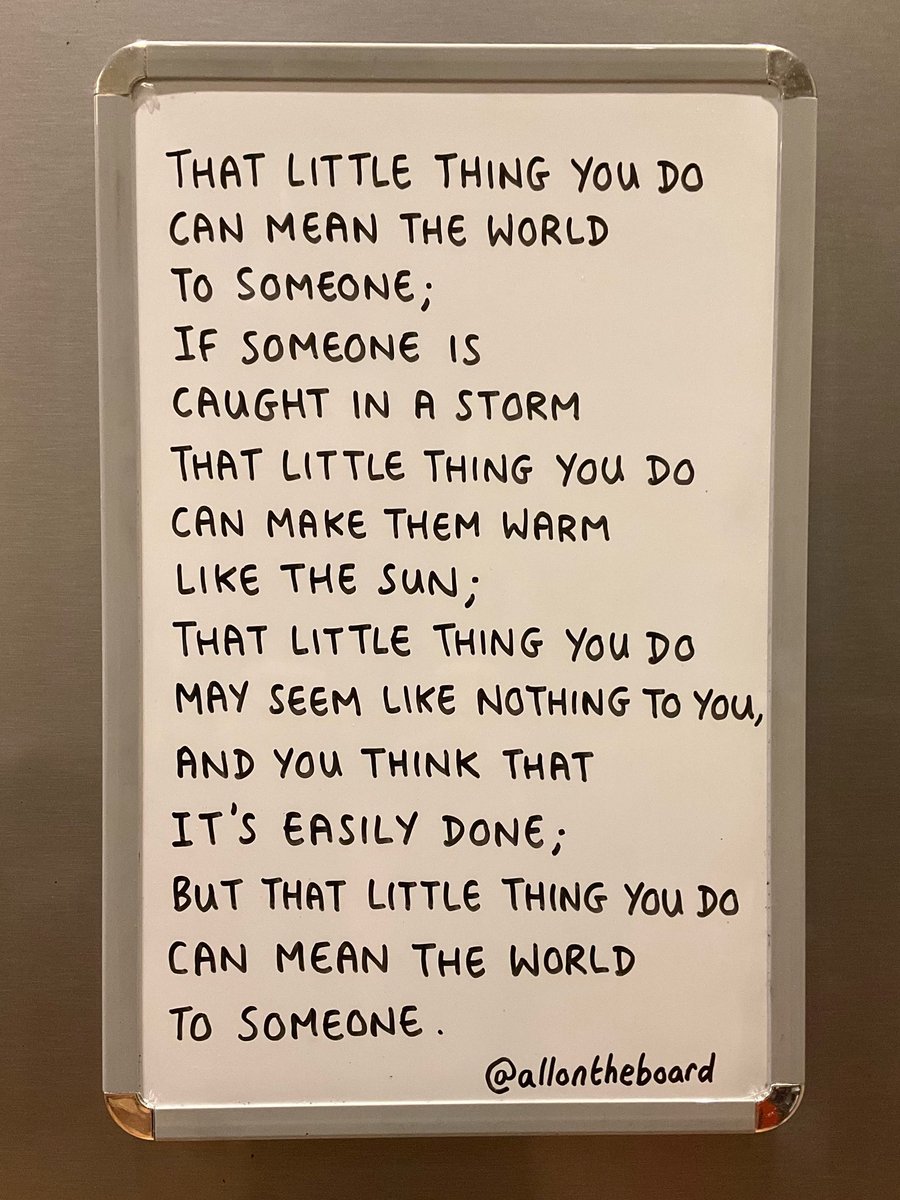 THAT LITTLE THING YOU DO
CAN MEAN THE WORLD
TO SOMEONE;
IF SOMEONE IS
CAUGHT IN A STORM
THAT LITTLE THING YOU DO
CAN MAKE THEM WARM
LIKE THE SUN;
THAT LITTLE THING YOU DO
MAY SEEM LIKE NOTHING TO YOU,
AND YOU THINK THAT
IT'S EASILY DONE;
BUT THAT LITTLE THING YOU DO
CAN MEAN THE WORLD
TO SOMEONE.
@allontheboard